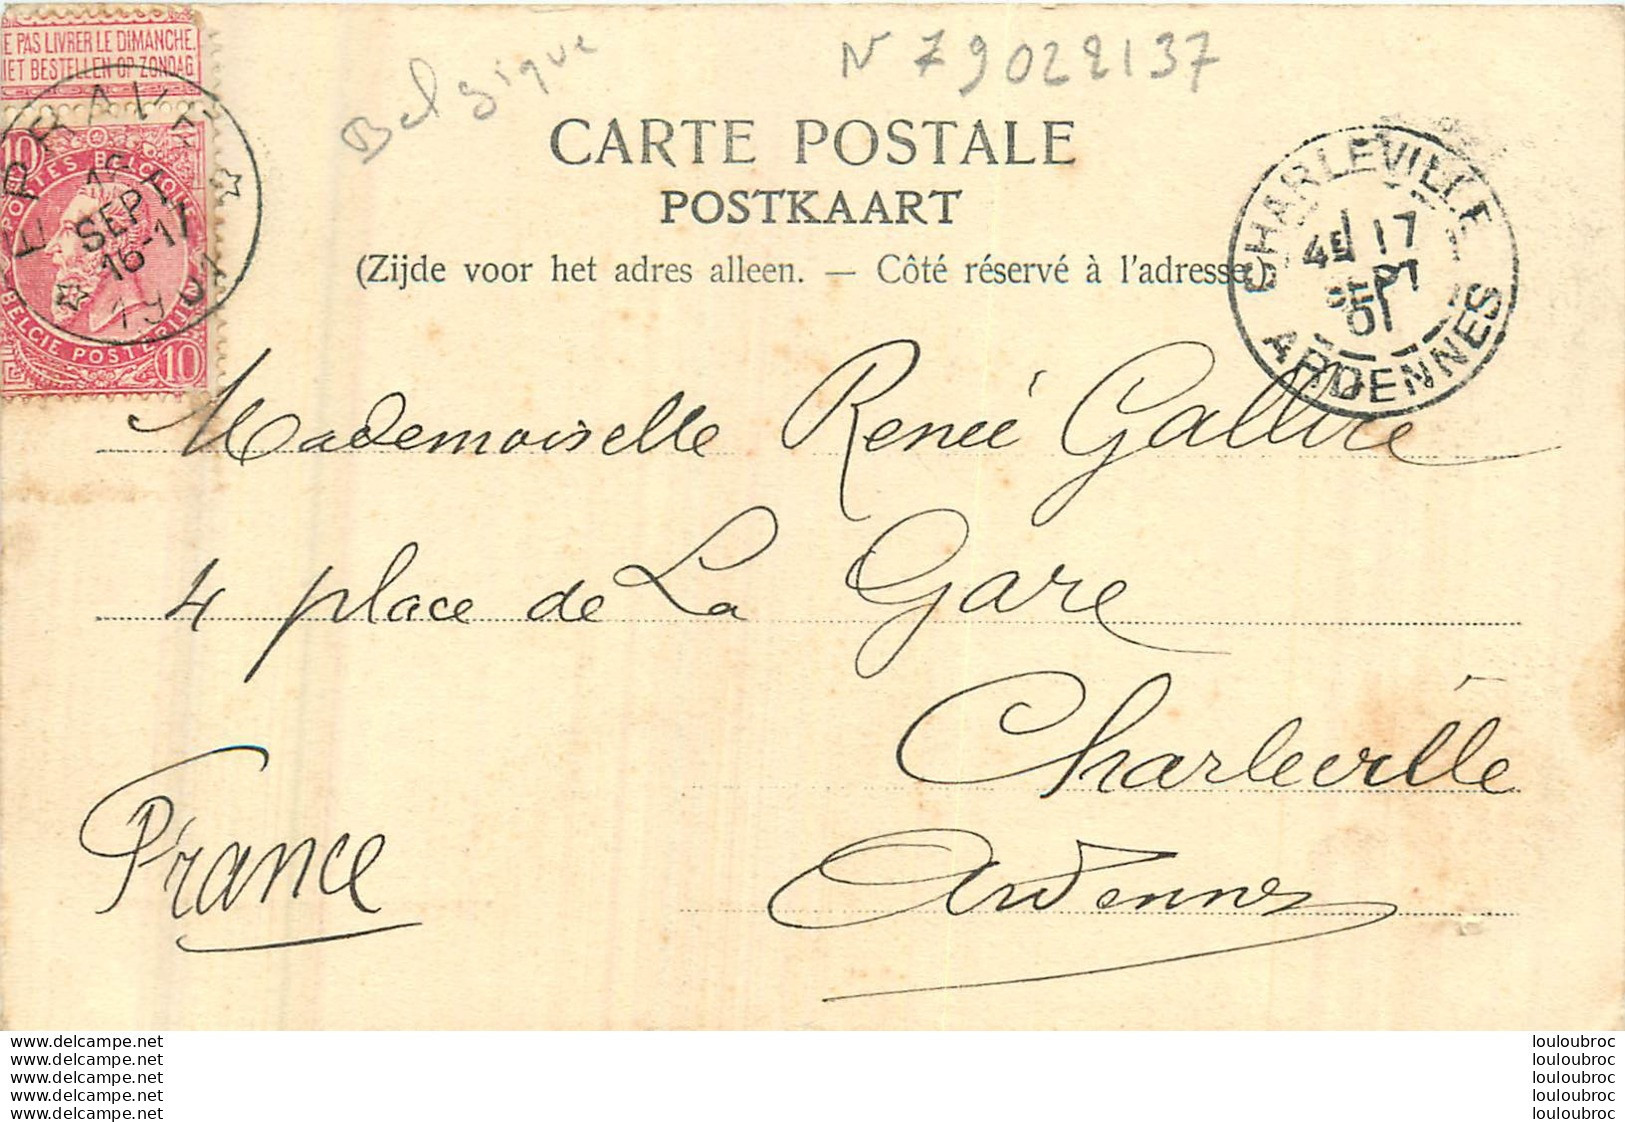 E PAS LIVRER LE DIMANCHE.
IET BESTELLEN OP ZONDAG
Belgique
N 79022137
EPRAVE
SEPT
16-17
1901
10
POSTES BELGIQUE
BELGIE POSTERIJEN
10
CARTE POSTALE
POSTKAART
(Zijde voor het adres alleen. — Côté réservé à l'adresse.)
CHARLEVILLE
17
SEPT
01
ARDENNES
Mademoiselle Renée
4 place de La Gare
Charleville
France
Ardennes
www.delcampe.net louloubroc
www.delcampe.net louloubroc
www.delcampe.net louloubroc
www.delcampe.net louloubroc
www.delcampe.net louloubroc